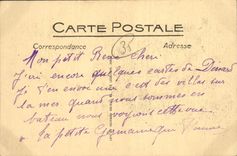 CARTE POSTALE
Correspondance Adresse
Mon petit René chéri
J'ai encore quelques cartes de Dinard
Je t'en envoie une c'est des villas sur
la mer quand nous sommes en
bateau nous voyons cette vue
ta petite qui t'aime